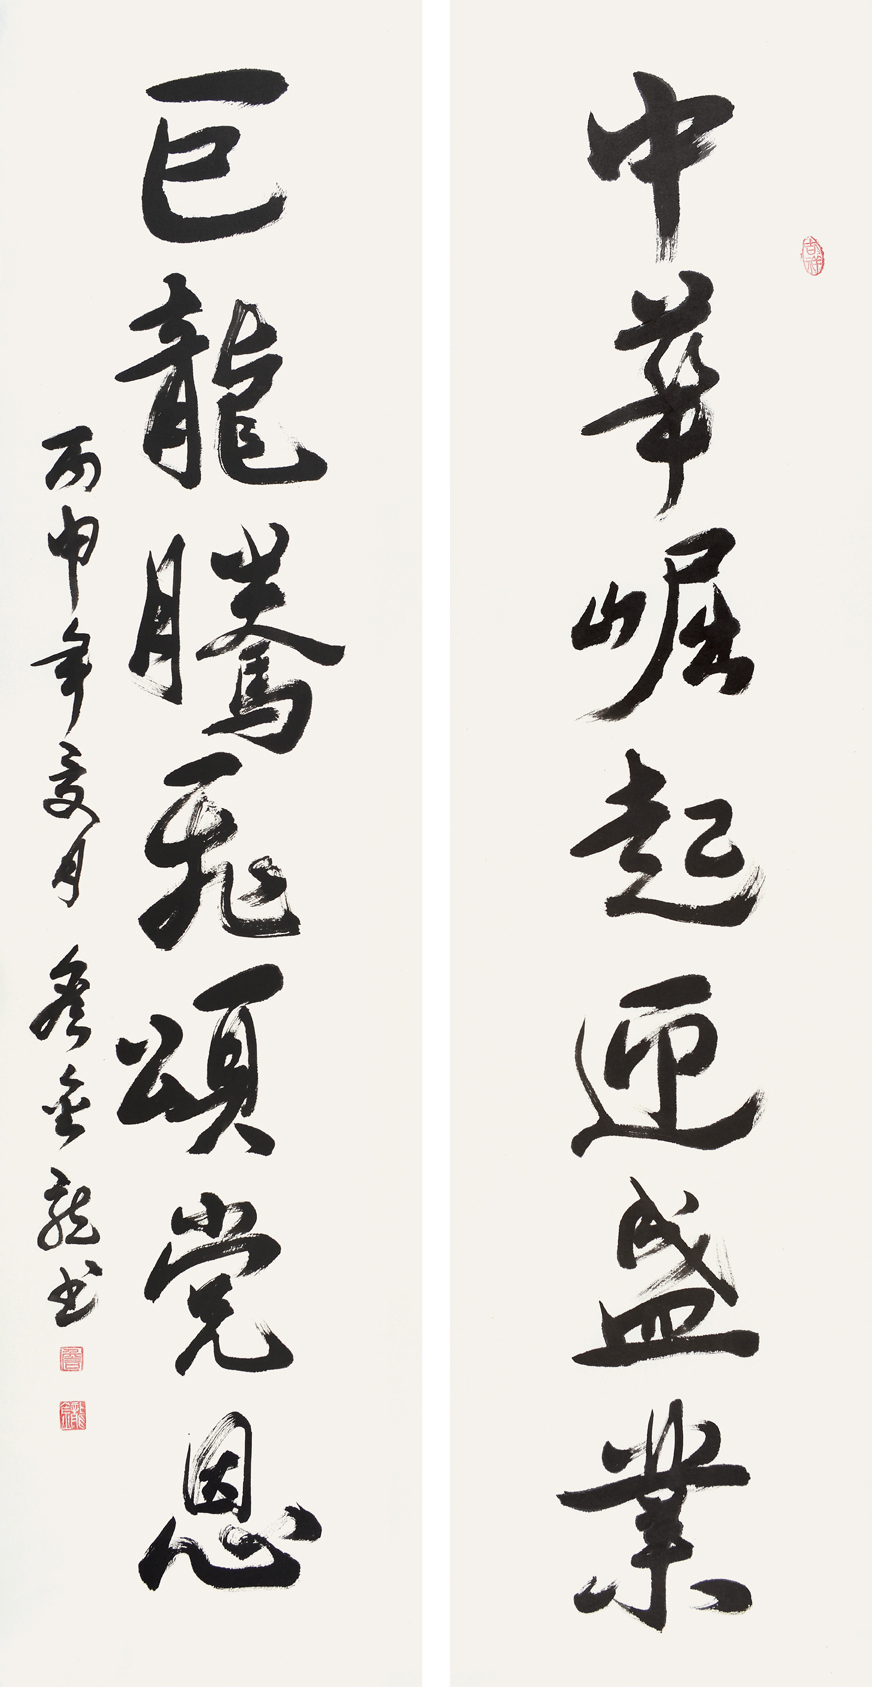 中華崛起迎盛業
吉祥
巨龍騰飛頌党恩
丙申年夏月詹金龍书